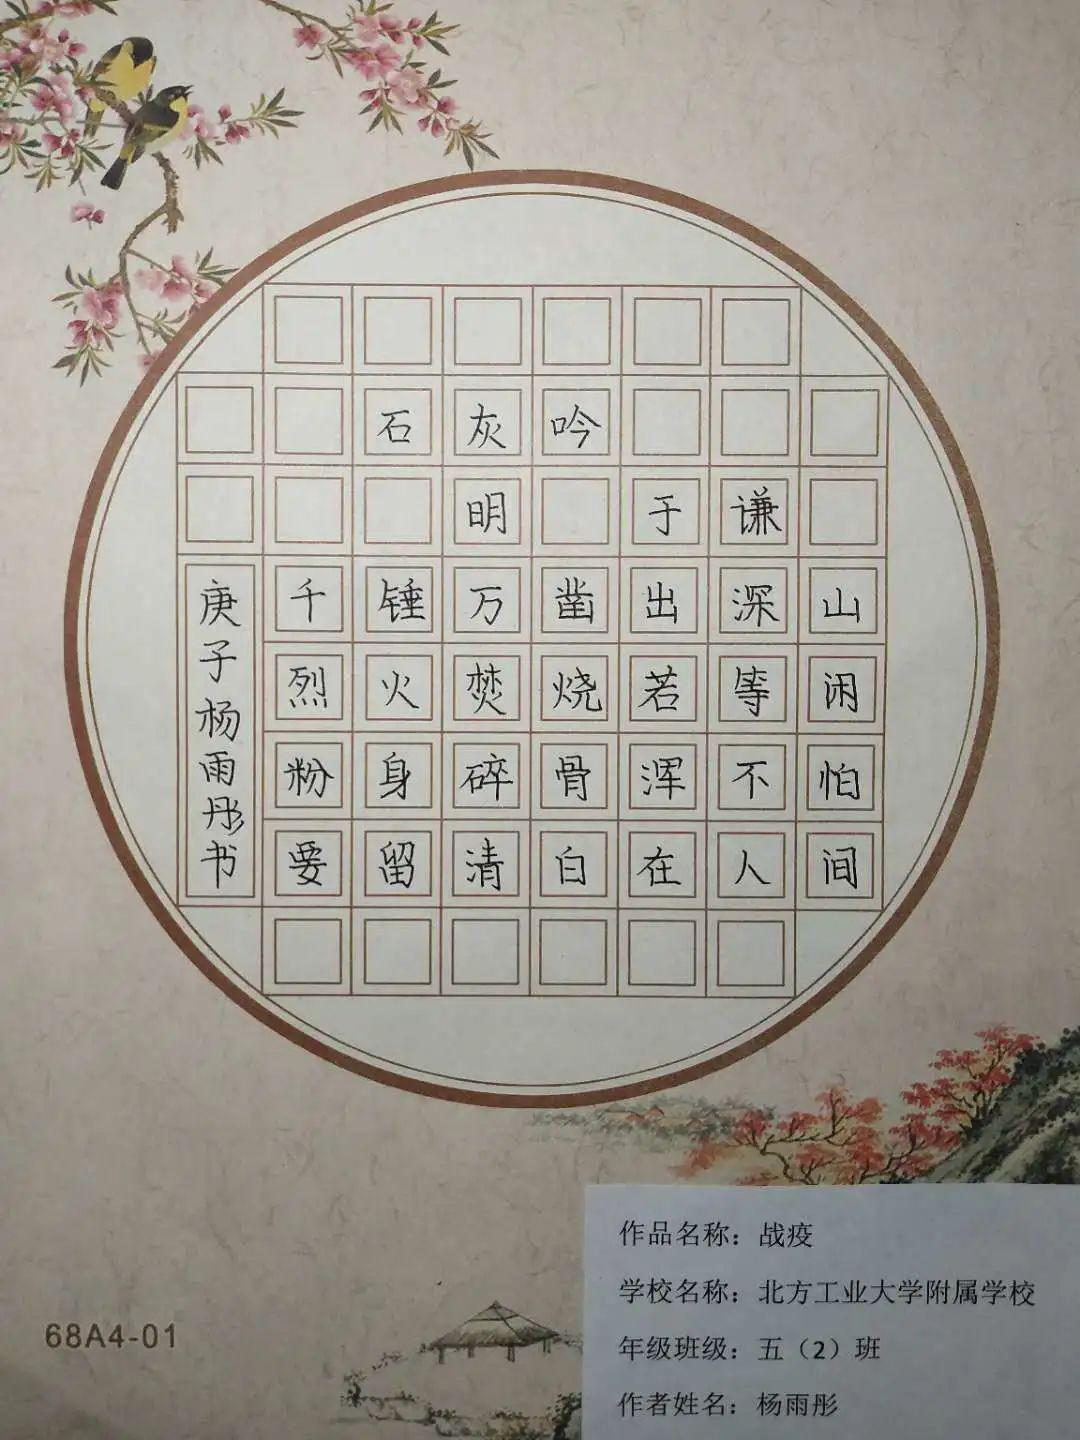 石灰吟
明 于谦
千锤万凿出深山
烈火焚烧若等闲
粉身碎骨浑不怕
要留清白在人间
庚子杨雨彤书
作品名称：战疫
学校名称：北方工业大学附属学校
年级班级：五（2）班
作者姓名：杨雨彤
68A4-01